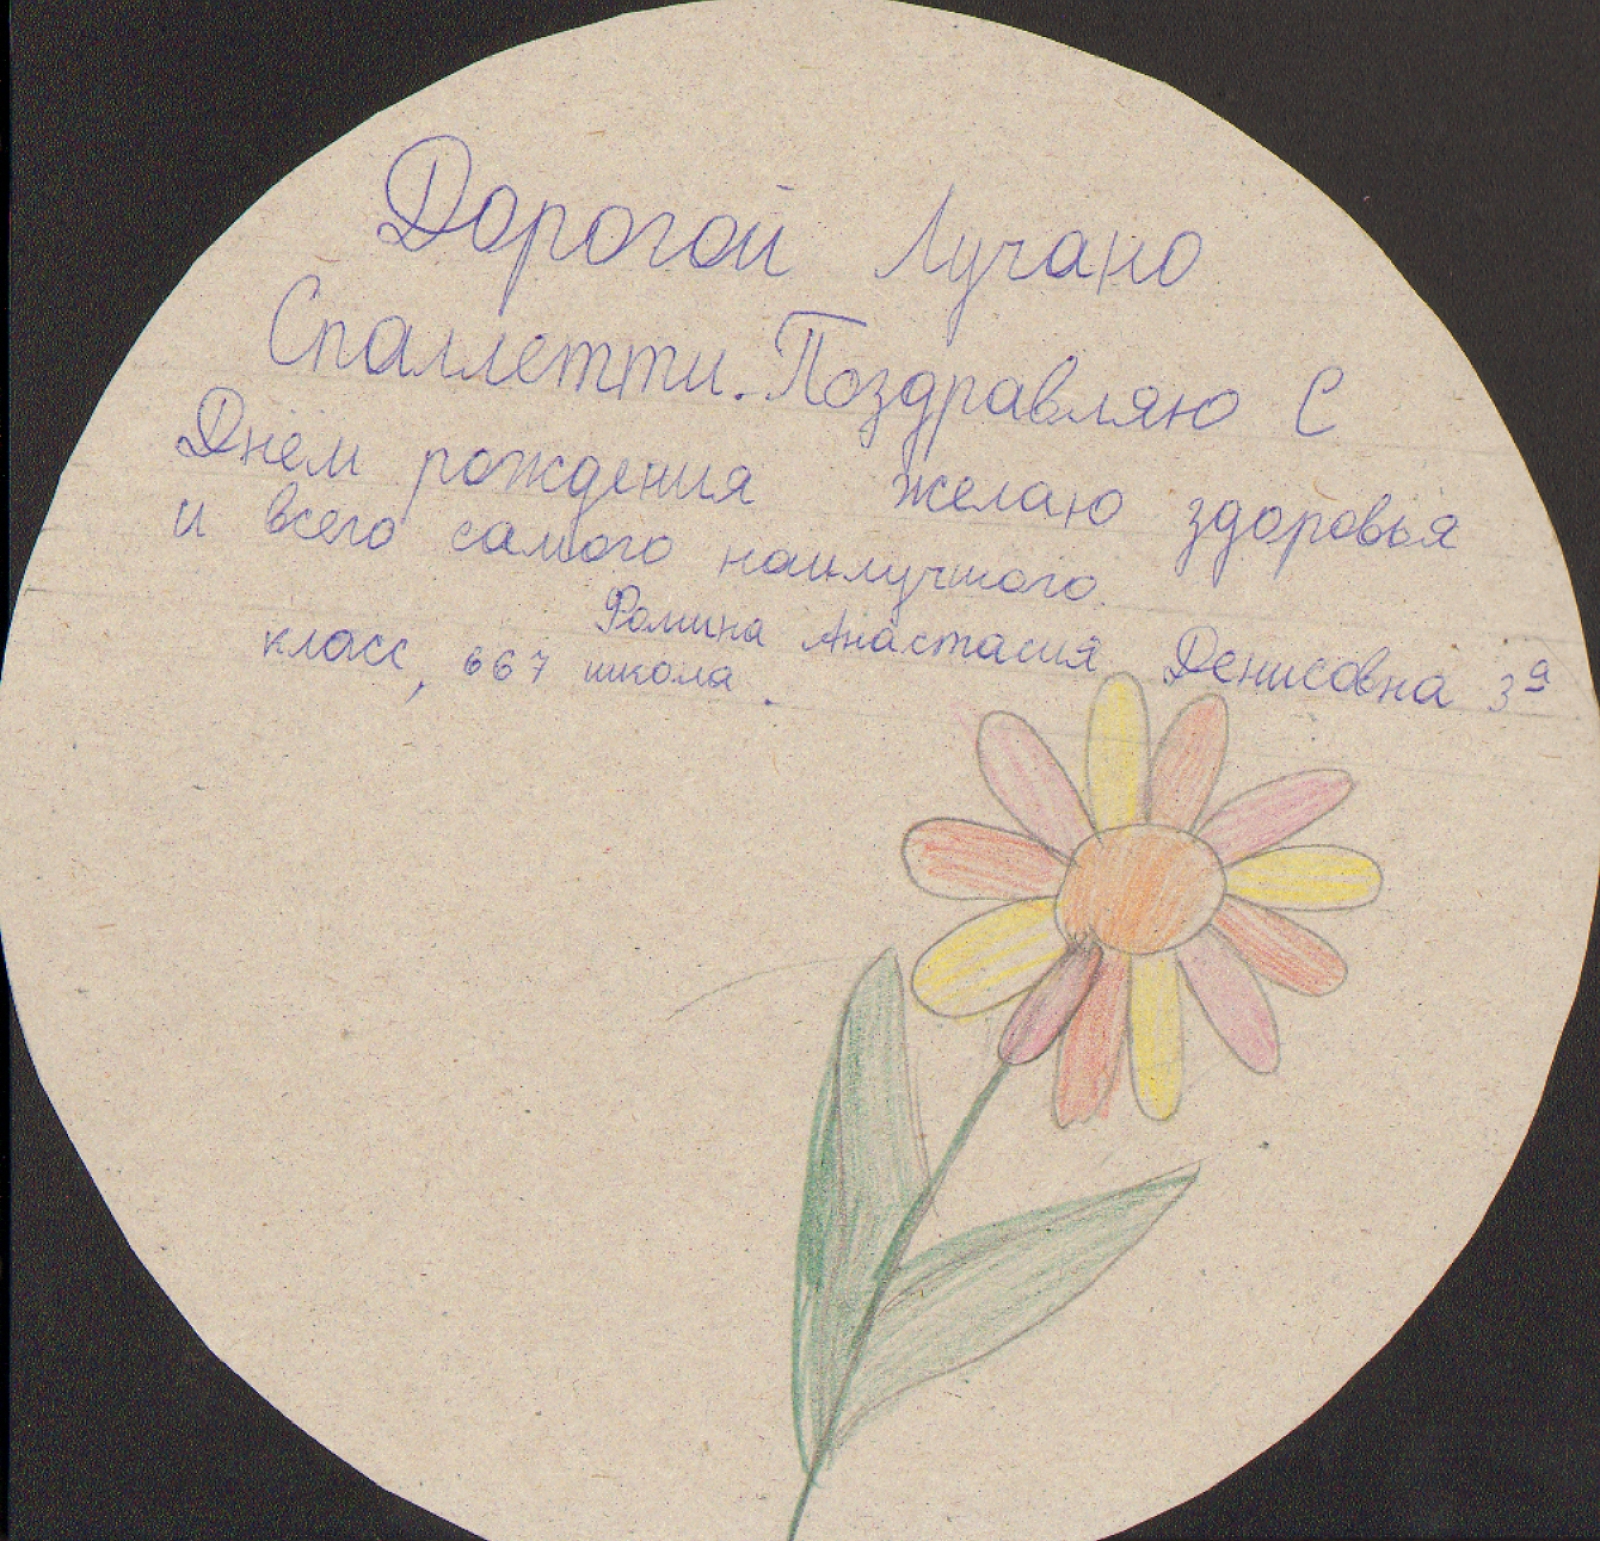 Дорогой Лучано
Спаллетти. Поздравляю С
Днём рождения желаю здоровья
и всего самого наилучшого.
Фомина Анастасия Денисовна 3а
класс, 667 школа.